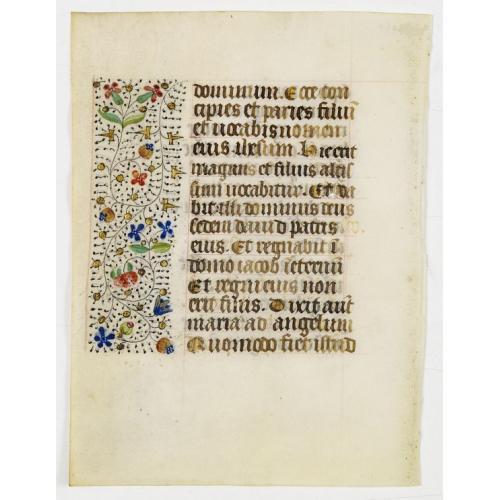 dominum. Ecce con
cipies et paries filiu
et vocabis nomen
eius ihesum. hic erit
magnus et filius altis
simi vocabitur. Et da
bit illi dominus deus
sedem david patris
eius. Et regnabit i
domo iacob ieternu
Et regni eius non
erit finis. Dixit aut
maria ad angelum
Quomodo fiet istud